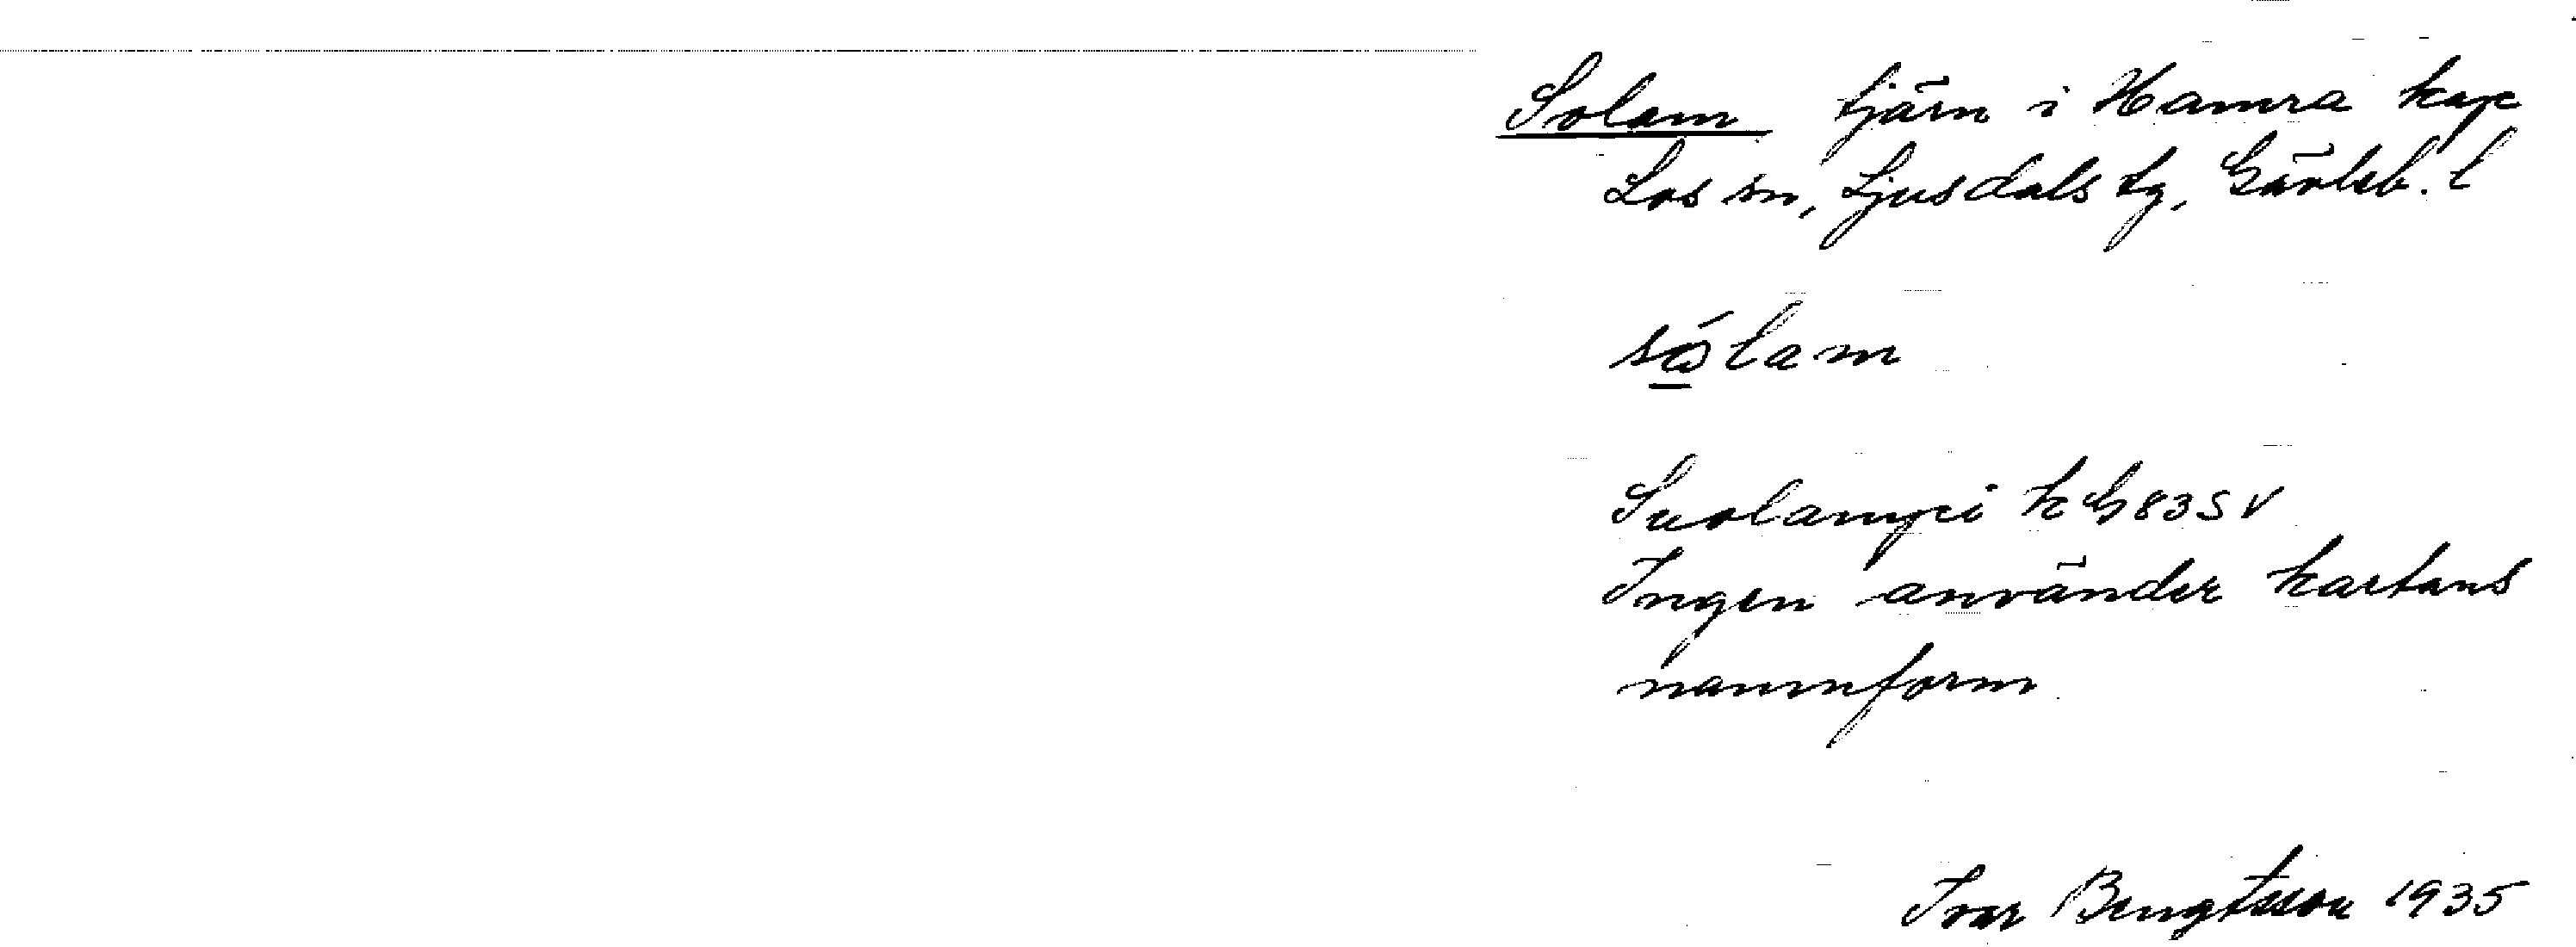 Solam tjärn i Hamra kap
Los sn, Ljusdals tg, Gävleb. l
Suolampi k G 83 SV
Ingen använder kartans
namnform
Ivar Bengtsson 1935